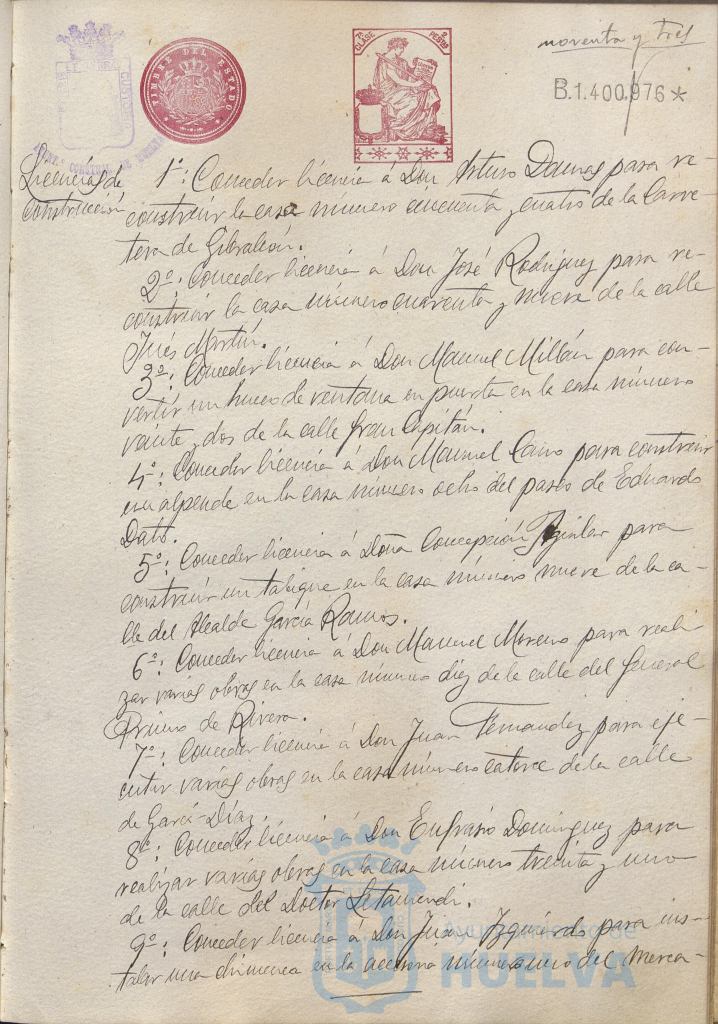 noventa y tres
B.1.400.976*
7ª CLASE 2 PESETAS
TIMBRE DEL ESTADO
Licencias de
Construcción
1º: Conceder licencia á Don Arturo Damas para re-
construir la casa número cincuenta y cuatro de la Carre-
tera de Gibraleón.
2º: Conceder licencia á Don José Rodríguez para re-
construir la casa número cuarenta y nueve de la calle
Inés Martín.
3º: Conceder licencia á Don Manuel Millán para con-
vertir un hueco de ventana en puerta en la casa número
veinte y dos de la calle Gran Capitán.
4º: Conceder licencia á Don Manuel Cano para construir
un alpende en la casa número ocho del paseo de Eduardo
Dato.
5º: Conceder licencia á Doña Concepción Aguilar para
construir un tabique en la casa número nueve de la ca-
lle del Alcalde García Ramos.
6º: Conceder licencia á Don Manuel Moreno para reali-
zar varias obras en la casa número diez de la calle del General
Primo de Rivera.
7º: Conceder licencia á Don Juan Fernandez para eje-
cutar varias obras en la casa número catorce de la calle
de García Díaz.
8º: Conceder licencia á Don Eufrasio Dominguez para
realizar varias obras en la casa número treinta y uno
de la calle del Doctor Letamendi.
9º: Conceder licencia á Don Juan Izquierdo para ins-
talar una chimenea en la accesoria número uno del Merca-
Ayuntamiento de
HUELVA